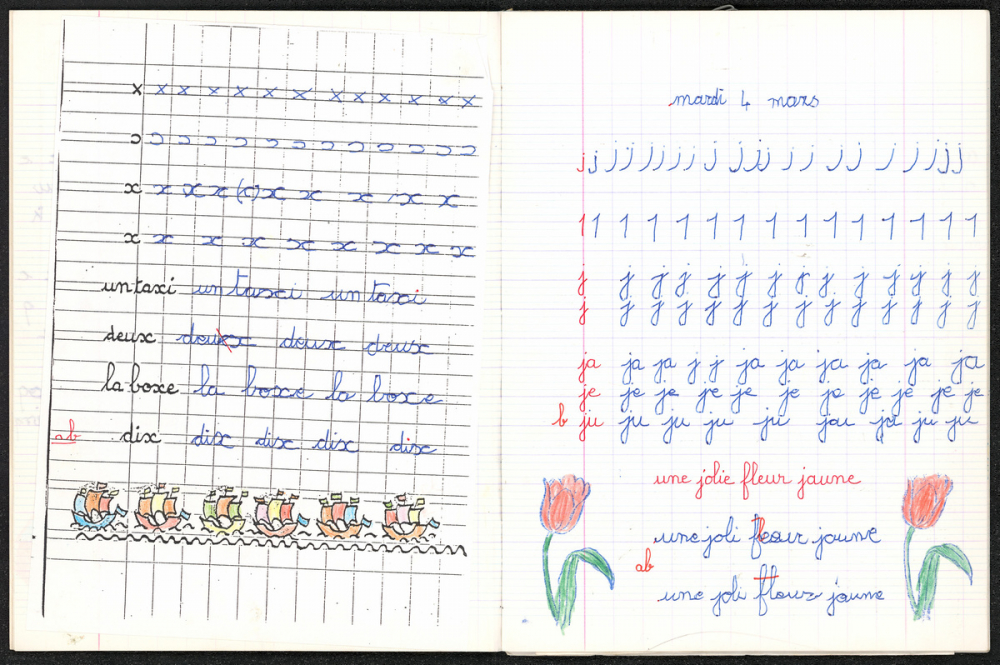 x x x x x x x x x x x x x
ɔ ɔ ɔ ɔ ɔ ɔ ɔ ɔ ɔ ɔ ɔ ɔ ɔ
x x x x (c)x x x x x
x x x x x x x x
un taxi un taxi un taxi
deux deux deux deux
la boxe la boxe la boxe
ab dix dix dix dix dix
mardi 4 mars
j j j j j j j j j j j j j j j j j j j j j
1 1 1 1 1 1 1 1 1 1 1 1 1 1 1
j j j j j j j j j j j j j j
j j j j j j j j j j j j j j
ja ja ja j j ja ja ja ja ja ja
je je je je je je je je je je je
b ju ju ju ju ju jou ju ju ju
une jolie fleur jaune
une joli fleur jaune
ab
une joli fleur jaune